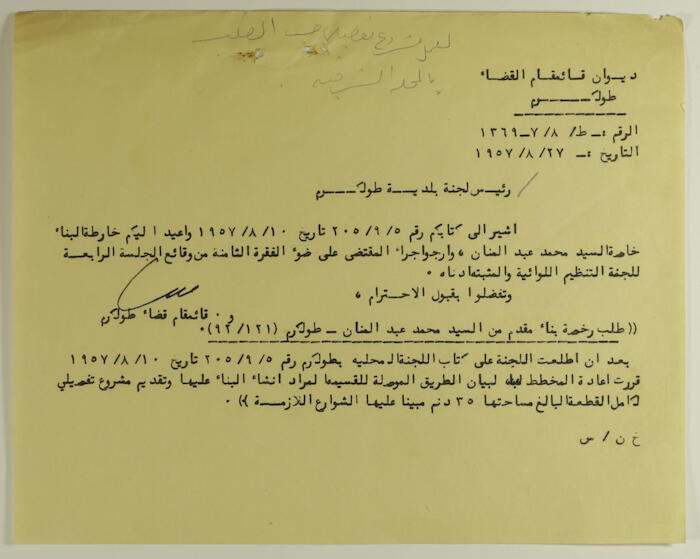 لعمل مشروع تفصيلي حسب الطلب
ديوان قائمقام القضاء
طولكـــرم
الرقم :ـ ط/ ٧/٨ــ١٣٦٩
التاريخ :ـ ١٩٥٧/٨/٢٧
رئيس لجنة بلديـــة طولكـــرم
اشير الى كتابكم رقم ٢٠٥/٩/٥ تاريخ ١٩٥٧/٨/١٠ واعيد اليكم خارطةالبناء
خاصةالسيد محمد عبد المنان ، وأرجواجراء المقتضى على ضوء الفقرة الثامنة من وقائع الجلسة الرابعــة
للجنة التنظيم اللوائية والمثبتهادناه ٠
وتفضلوا بقبول الاحــترام ،
و ٠ قائمقام قضاء طولكرم
(( طلب رخصة بناء مقدم من السيد محمد عبد المنان ــ طولكرم (٩٢/١٢١)٠
بعد ان اطلعت اللجنة على كتاب اللجنة المحليه بطولكرم رقم ٢٠٥/٩/٥ تاريخ ١٩٥٧/٨/١٠
قررت اعادة المخطط لبيان الطريق الموصلة للقسيمةالمراد انشاء البناء عليها وتقديم مشروع تفصيلي
لكامل القطعة البالغ مساحتها ٣٥ دنم مبينا عليها الشوارع اللازمــة )) ٠
خ ن / س